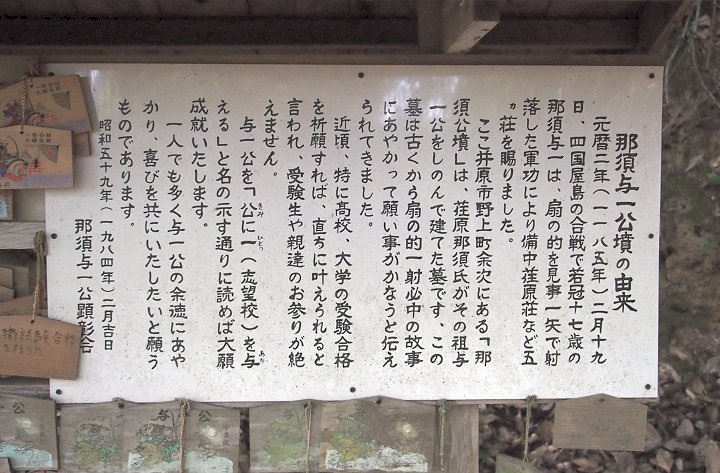 那須与一公墳の由来
元暦二年(一一八五年)二月十九
日、四国屋島の合戦で若冠十七歳の
那須与一は、扇の的を見事一矢で射
落した軍功により備中荏原荘など五
ヵ荘を賜りました。
ここ井原市野上町余次にある「那
須公墳」は、荏原那須氏がその祖与
一公をしのんで建てた墓です、この
墓は古くから扇の的一射必中の故事
にあやかって願い事がかなうと伝え
られてきました。
近頃、特に高校、大学の受験合格
を祈願すれば、直ちに叶えられると
言われ、受験生や親達のお参りが絶
えません。
与一公を「公に一(志望校)を与
きみ ひとつ あた
える」と名の示す通りに読めば大願
成就いたします。
一人でも多く与一公の余徳にあや
かり、喜びを共にいたしたいと願う
ものであります。
昭和五十九年(一九八四年)二月吉日
那須与一公顕彰会
試験合格
与
公